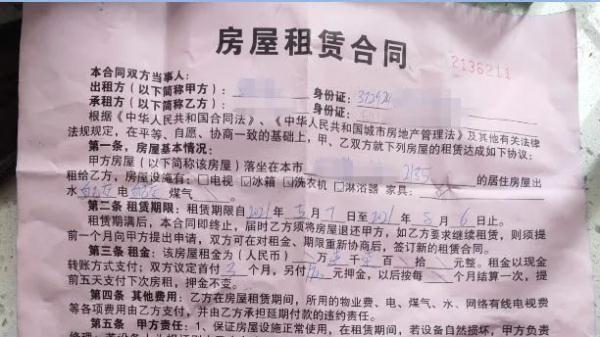 房屋租赁合同
2136211
本合同双方当事人：
出租方（以下简称甲方）： 身份证：
承租方（以下简称乙方）： 身份证：
根据《中华人民共和国合同法》、《中华人民共和国城市房地产管理法》及其他有关法律
法规规定，在平等、自愿、协商一致的基础上，甲、乙双方就下列房屋的租赁达成如下协议：
第一条，房屋基本情况：
甲方房屋（以下简称该房屋）落坐在本市 2135 的居住房屋出
租给乙方，房屋设施有：□电视 □冰箱 □洗衣机 □淋浴器 家具：
水 电 煤气 。
第二条 租赁期限：租赁期限自2021年 5月7日至2021年 8月6日止。
租赁期满后，本合同即终止，届时乙方须将房屋退还甲方，如乙方要求继续租赁，则须提
前一个月向甲方提出申请，双方可在对租金、期限重新协商后，签订新的租赁合同。
第三条 租金：该房屋租金为（人民币） 万 千 百 拾 元整。租金以现金
转账方式支付；双方议定首付3个月，另付 元押金，以后按每 个月结算一次，提
前五天支付下次房租，押金不变。
第四条 其他费用：乙方在房屋租赁期间，所用的物业费、电、煤气、水、网络有线电视费
等各项费用由乙方支付，并由乙方承担延期付款的违约责任。
第五条 甲方责任：1、保证房屋设施正常使用，在租赁期间，若设备自然损坏，甲方负责